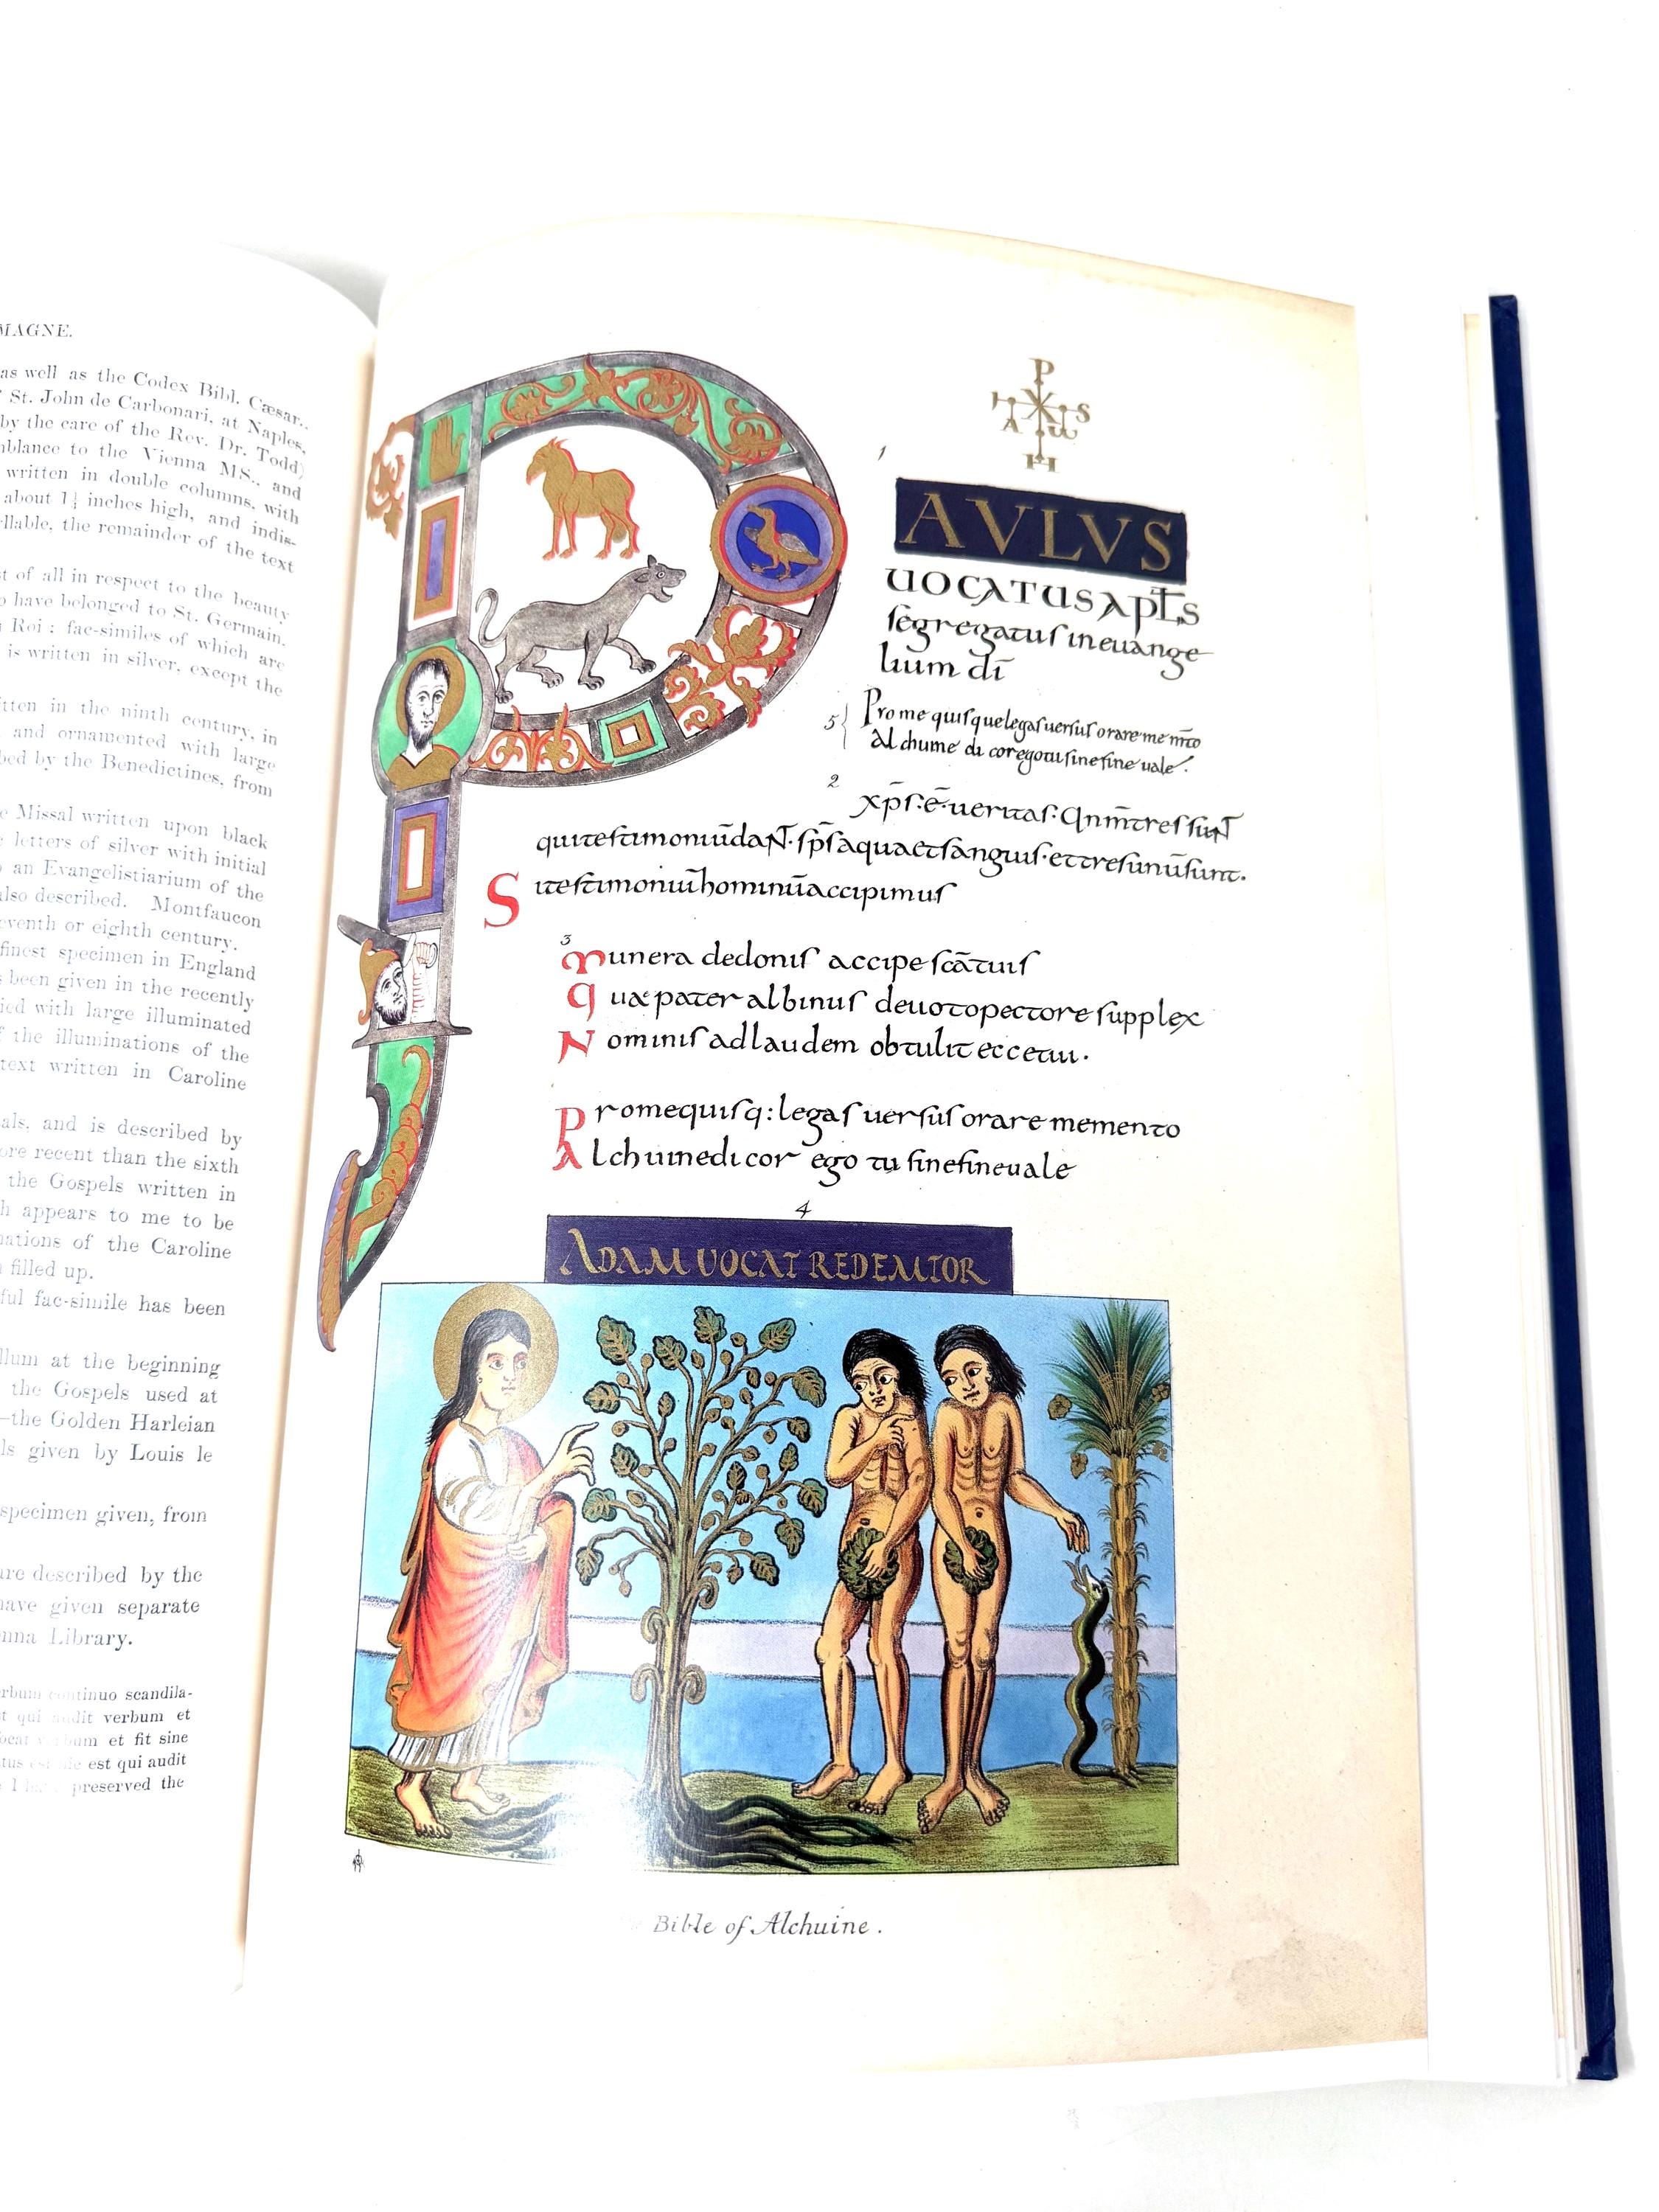 MAGNE.
as well as the Codex Bibl. Cæsar.,
St. John de Carbonari, at Naples,
by the care of the Rev. Dr. Todd)
mblance to the Vienna MS., and
written in double columns, with
about 1½ inches high, and indis-
llable, the remainder of the text
t of all in respect to the beauty
o have belonged to St. Germain,
Roi: fac-similes of which are
is written in silver, except the
tten in the ninth century, in
and ornamented with large
bed by the Benedictines, from
e Missal written upon black
letters of silver with initial
o an Evangelistiarium of the
also described. Montfaucon
eventh or eighth century.
finest specimen in England
been given in the recently
ied with large illuminated
f the illuminations of the
text written in Caroline
als, and is described by
ore recent than the sixth
the Gospels written in
h appears to me to be
nations of the Caroline
filled up.
ful fac-simile has been
llum at the beginning
the Gospels used at
—the Golden Harleian
ls given by Louis le
specimen given, from
are described by the
have given separate
nna Library.
rbum continuo scandila-
t qui audit verbum et
ocat verbum et fit sine
tus est qui audit
preserved the
P
H S
A ω
H
1
AVLVS
UOCATUS APŁS
segregatus in euange
lium dī
5 Pro me quisque legas uersus orare mem̄to
Alchuine dicor ego tu sine fine uale.
2
xp̄s. ē. ueritas. Qnm̄ tres sunt
qui testimoniū dant. sp̄s aqua et sanguis. et tres unū sunt.
Si testimoniū hominū accipimus
3
Munera de donis accipe scā tuis
Quæ pater albinus deuoto pectore supplex
Nominis ad laudem obtulit ecce tui.
Pro me quisq: legas uersus orare memento
Alchuine dicor ego tu sine fine uale
4
ADAM UOCAT REDEMTOR
Bible of Alchuine.